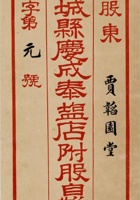 股東 賈韜園堂
城縣慶成奉鹽店附股自
字第元號